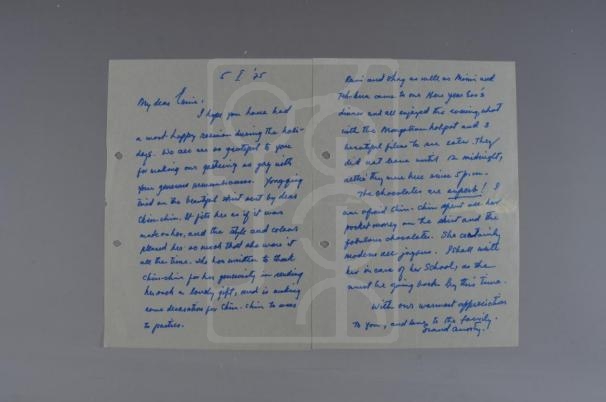 5 I '75
My dear
I hope you have had
a most happy reunion during the holi-
days. We are so grateful to you
for making our gathering so gay with
your generous remembrances.
tried on the beautiful skirt sent by dear
Chin-chin. It fits her as if it was
made on her, and the style and colours
pleased her so much that she wore it
all the time. She has written to thank
Chin-chin for her generosity in sending
her such a lovely gift, and is making
some decoration for Chin-chin to wear
to parties.
and as well as Mimi and
came to our New Year Eve's
dinner and all enjoyed the evening, what
with the Mongolian hotpot and 3
beautiful films to see later. They
did not leave until 12 midnight,
they were here since 5 p.m.
The chocolates are superb! I
am afraid Chin-chin spent all her
pocket money on the skirt and the
fabulous chocolate. She certainly
made us all joyous. I shall write
her in care of her School, as she
must be going back by this time.
With our warmest appreciation
to you, and love to the family.